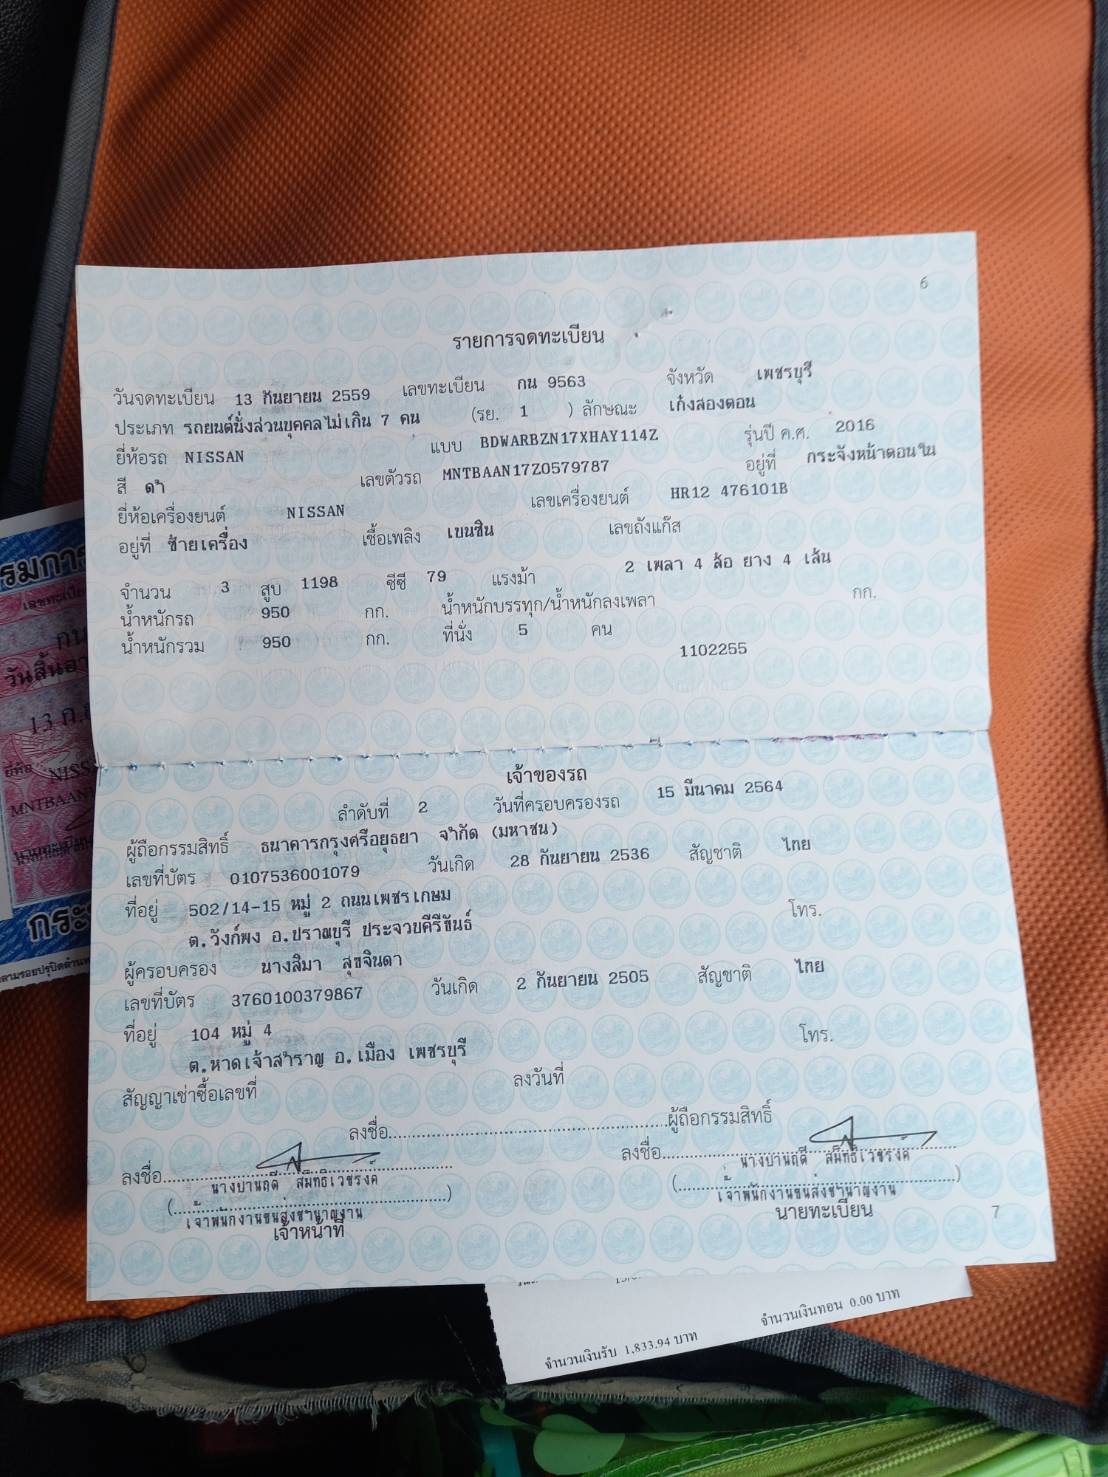 6
รายการจดทะเบียน
วันจดทะเบียน 13 กันยายน 2559 เลขทะเบียน กน 9563 จังหวัด เพชรบุรี
ประเภท รถยนต์นั่งส่วนบุคคลไม่เกิน 7 คน (รย. 1 ) ลักษณะ เก๋งสองตอน
ยี่ห้อรถ NISSAN แบบ BDWARBZN17XHAY114Z รุ่นปี ค.ศ. 2016
สี ดำ เลขตัวรถ MNTBAAN17Z0579787 อยู่ที่ กระจังหน้าตอนใน
ยี่ห้อเครื่องยนต์ NISSAN เลขเครื่องยนต์ HR12 476101B
อยู่ที่ ซ้ายเครื่อง เชื้อเพลิง เบนซิน เลขถังแก๊ส
จำนวน 3 สูบ 1198 ซีซี 79 แรงม้า 2 เพลา 4 ล้อ ยาง 4 เส้น
น้ำหนักรถ 950 กก. น้ำหนักบรรทุก/น้ำหนักลงเพลา กก.
น้ำหนักรวม 950 กก. ที่นั่ง 5 คน
1102255
เจ้าของรถ
ลำดับที่ 2 วันที่ครอบครองรถ 15 มีนาคม 2564
ผู้ถือกรรมสิทธิ์ ธนาคารกรุงศรีอยุธยา จำกัด (มหาชน)
เลขที่บัตร 0107536001079 วันเกิด 28 กันยายน 2536 สัญชาติ ไทย
ที่อยู่ 502/14-15 หมู่ 2 ถนนเพชรเกษม โทร.
ต.วังก์พง อ.ปราณบุรี ประจวบคีรีขันธ์
ผู้ครอบครอง นางสิมา สุขจินดา
เลขที่บัตร 3760100379867 วันเกิด 2 กันยายน 2505 สัญชาติ ไทย
ที่อยู่ 104 หมู่ 4 โทร.
ต.หาดเจ้าสำราญ อ.เมือง เพชรบุรี
สัญญาเช่าซื้อเลขที่ ลงวันที่
ลงชื่อ ผู้ถือกรรมสิทธิ์
ลงชื่อ ลงชื่อ
นางปานฤดี สมิทธิเวชรงค์ นางปานฤดี สมิทธิเวชรงค์
เจ้าพนักงานขนส่งชำนาญงาน เจ้าพนักงานขนส่งชำนาญงาน
เจ้าหน้าที่ นายทะเบียน
7
จำนวนเงินรับ 1,833.94 บาท จำนวนเงินทอน 0.00 บาท
กน
วันสิ้นอา
13 ก.
ยี่ห้อ NISS
MNTBAAN
กระ